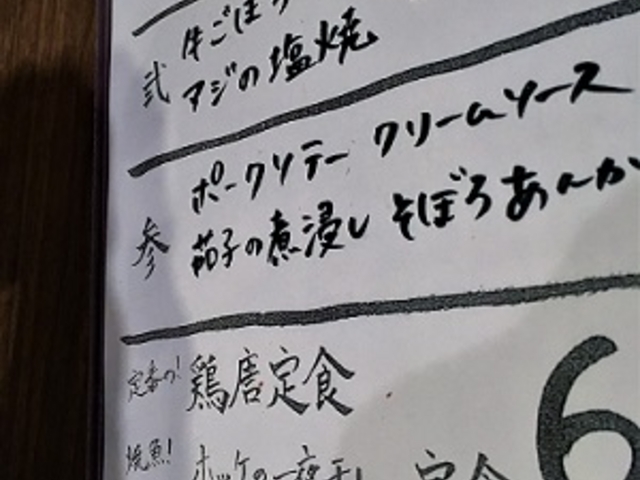 牛ごぼう
弐 アジの塩焼
ポークソテー クリームソース
参 茄子の煮浸し そぼろあんか
定番の! 鶏唐定食
6
焼魚! ホッケの一夜干し 定食